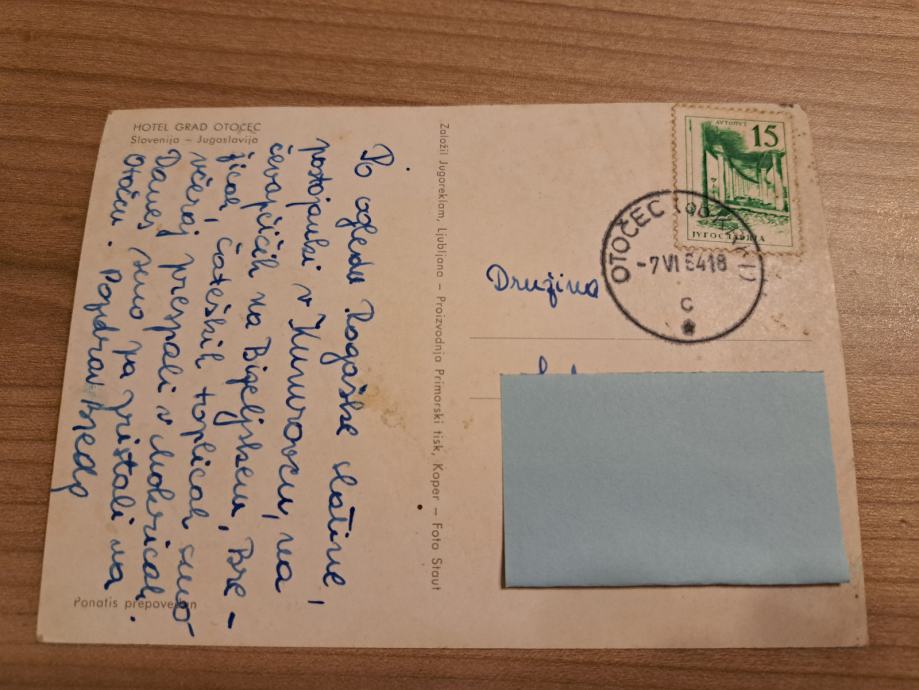 HOTEL GRAD OTOČEC
Slovenija – Jugoslavija
Po ogledu Rogaške slatine,
postojanki v Kumrovcu, na
čevapčičih na Bizeljskem, Bre-
žicah, Čateških toplicah smo
včeraj prespali v Mokricah.
Danes smo pa pristali na
Otočcu. Pozdrav
Ponatis prepovedan
Založil Jugoreklam, Ljubljana – Proizvodnja Primorski tisk, Koper – Foto Staut
Družina
15
ЈУГОСЛАВИЈА
OTOČEC
-7 VI 64 18
c